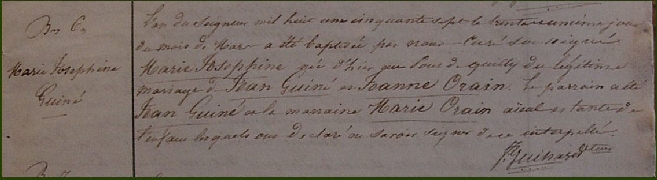 Bap. 6e
Marie Josephine
Guiné
L'an du Seigneur mil huit cent cinquante sept le trente unième jour
du mois de Mars a été baptisée par nous Curé soussigné
Marie Joséphine née d'hier au bourg de quilly du légitime
mariage d Jean Guiné et Jeanne Orain. Le parrain a été
Jean Guiné et la marraine Marie Orain aïeul et tante de
l'enfant lesquels ont déclaré ne savoir signer de ce interpellé.